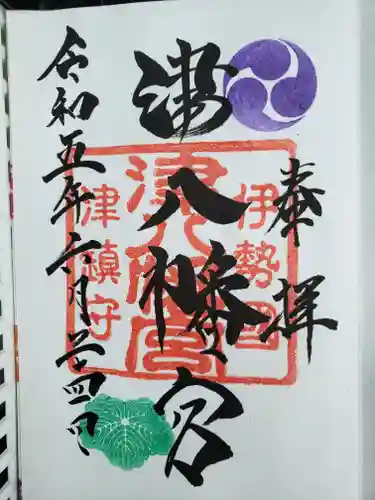 奉拝
伊勢国
津八幡宮
津八幡宮
津鎮守
令和五年六月廿四日